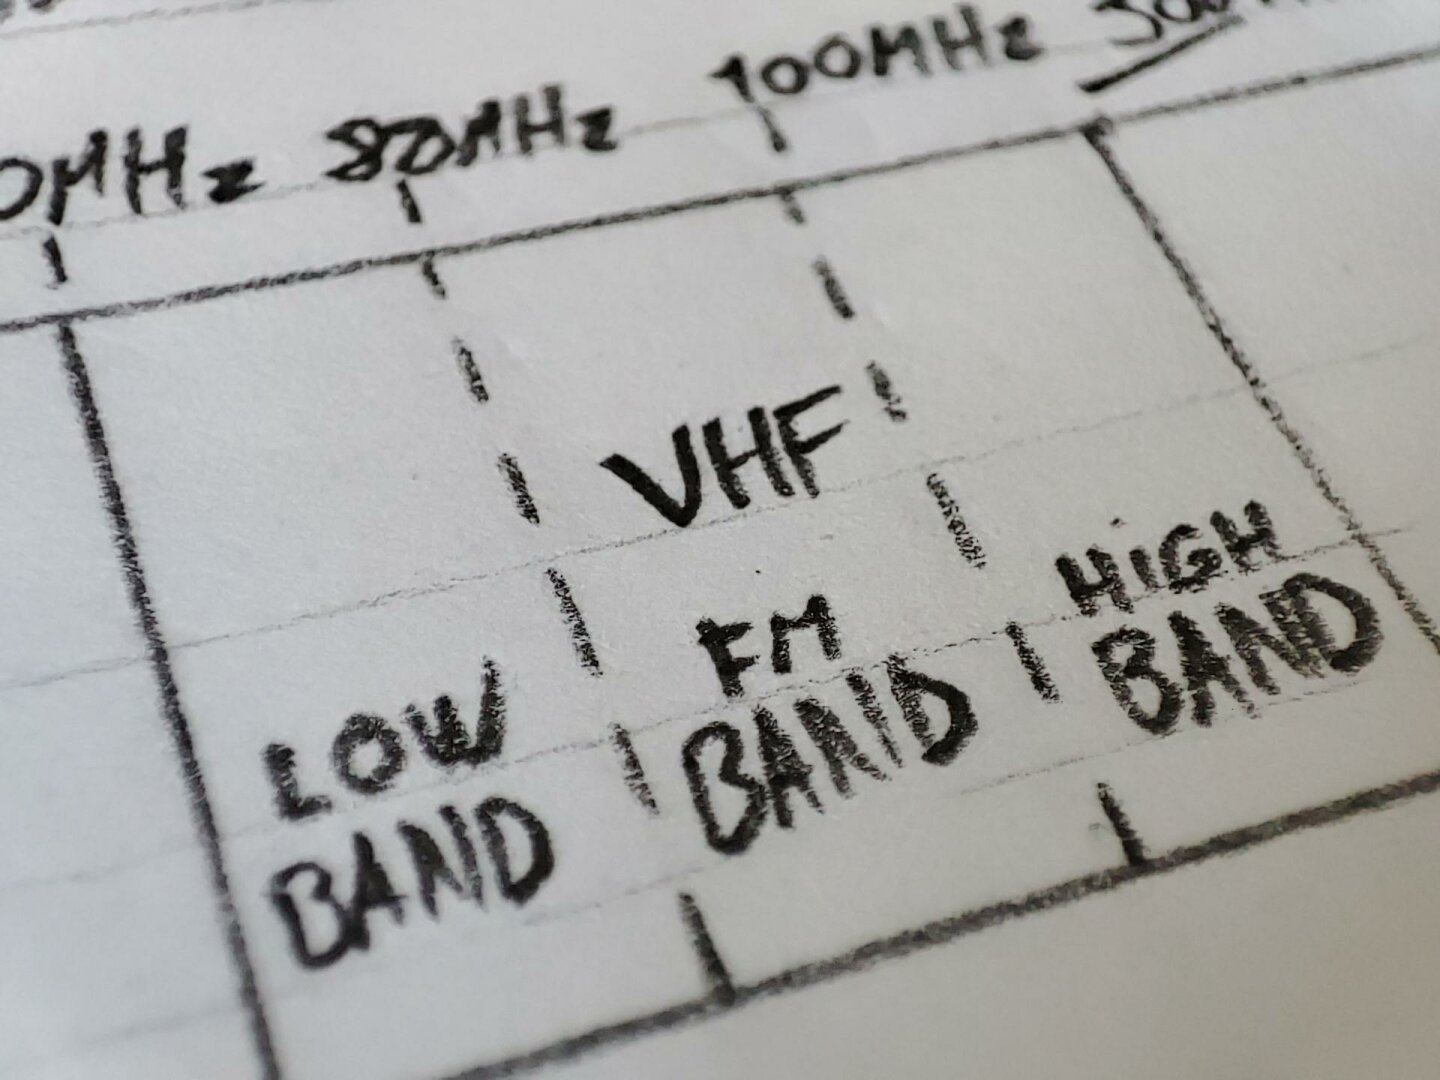 80MHz 100MHz
VHF
LOW BAND
FM BAND
HIGH BAND